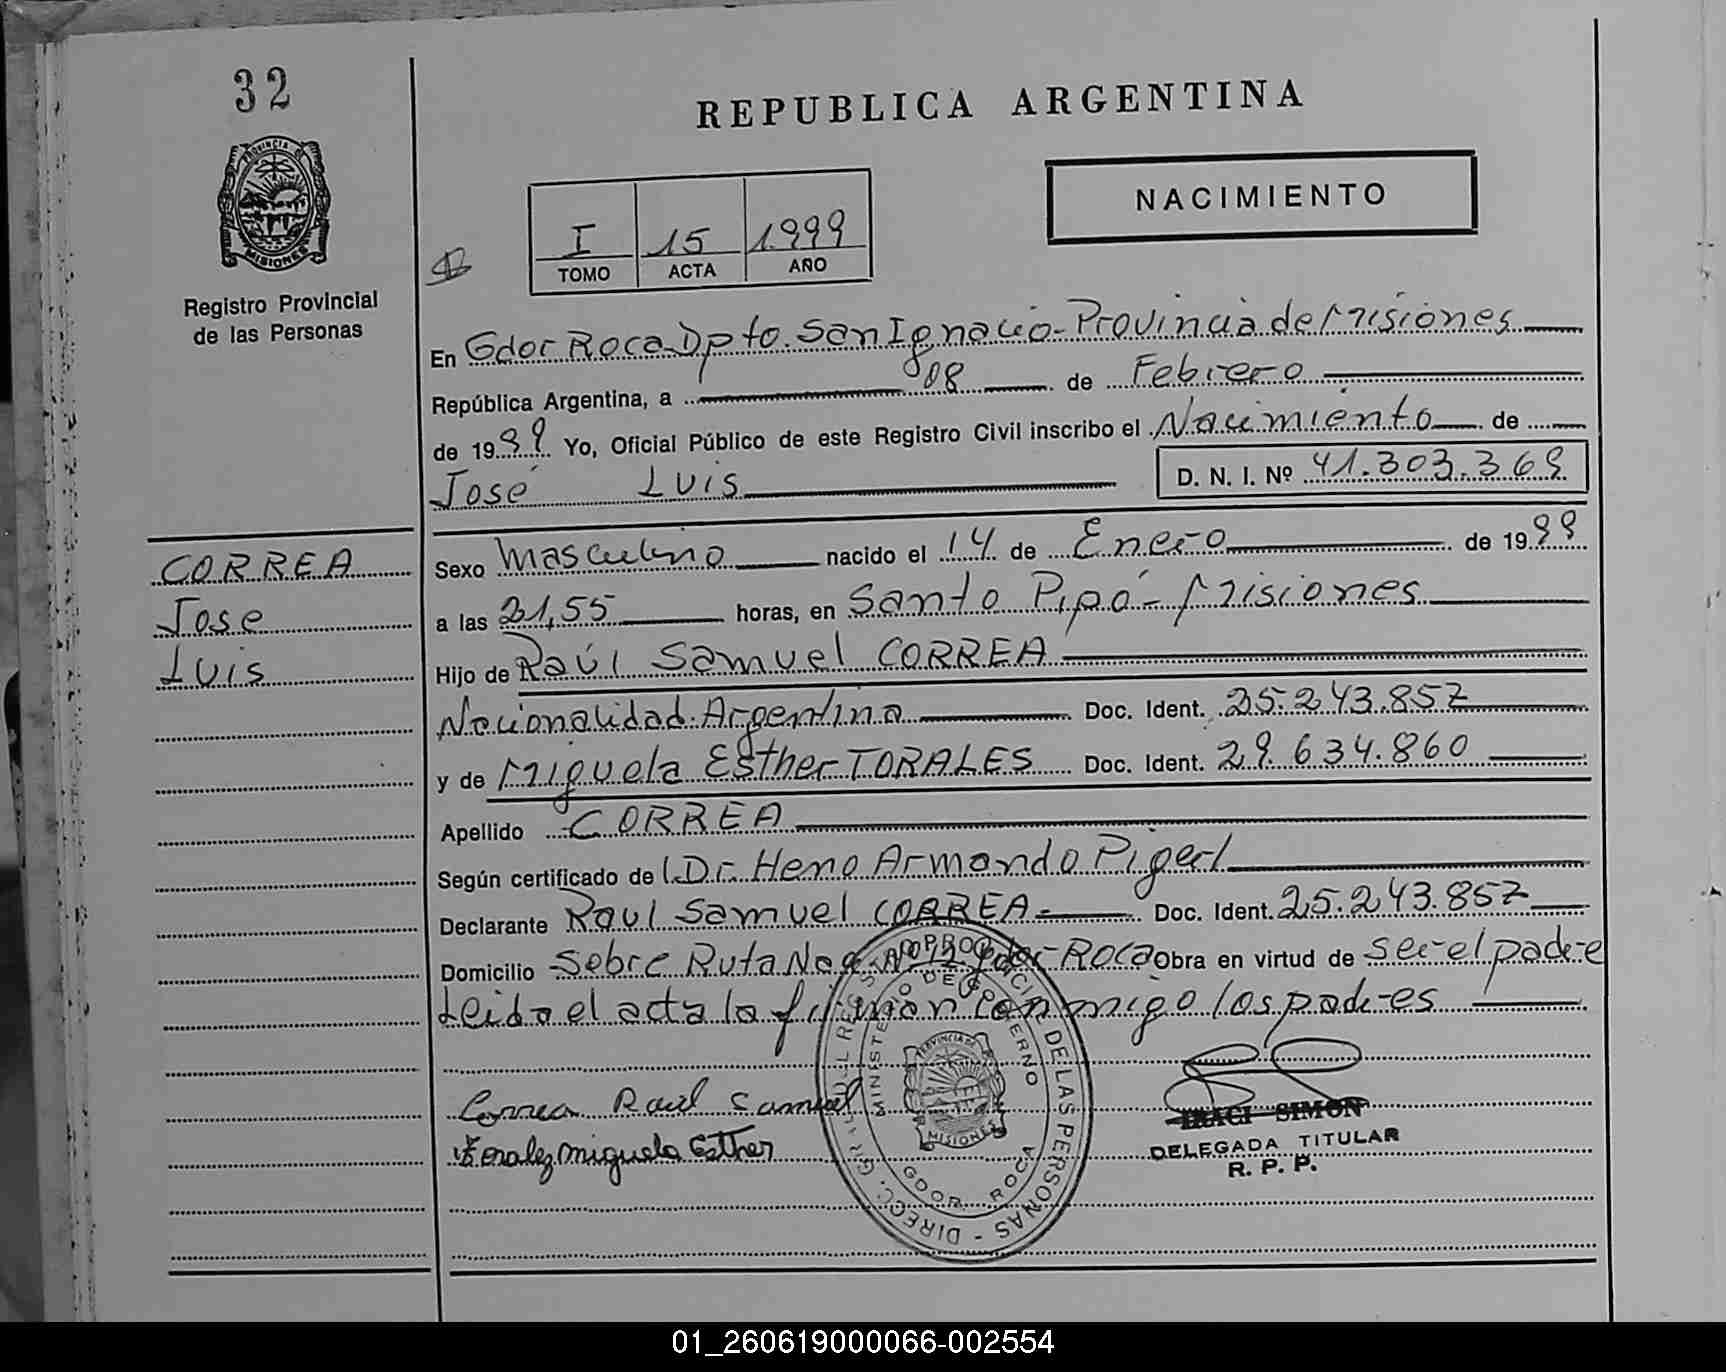 32
REPUBLICA ARGENTINA
PROVINCIA DE
MISIONES
Registro Provincial
de las Personas
I 15 1999
TOMO ACTA AÑO
NACIMIENTO
En Gdor Roca Dpto. San Ignacio - Provincia de Misiones
República Argentina, a 08 de Febrero
de 1999 Yo, Oficial Público de este Registro Civil inscribo el Nacimiento de
José Luis D. N. I. Nº 41.303.369
CORREA
Jose
Luis
Sexo Masculino nacido el 14 de Enero de 1999
a las 21,55 horas, en Santo Pipó - Misiones
Hijo de Raúl Samuel CORREA
Nacionalidad Argentina Doc. Ident. 25.243.857
y de Miguela Esther TORALES Doc. Ident. 29.634.860
Apellido CORREA
Según certificado de l Dr. Heno Armando Pigerl
Declarante Raul Samuel CORREA - Doc. Ident. 25.243.857
Domicilio Sobre Ruta Nac. Nº 12 Gdor Roca Obra en virtud de ser el padre
Leida el acta la firman conmigo los padres
Correa Raul Samuel
miguela Esther
DIREC. GRAL. DEL REG. PROVINCIAL DE LAS PERSONAS
MINISTERIO DE GOBIERNO
PROVINCIA DE
MISIONES
GDOR. ROCA
IRACI SIMON
DELEGADA TITULAR
R. P. P.
01_260619000066-002554